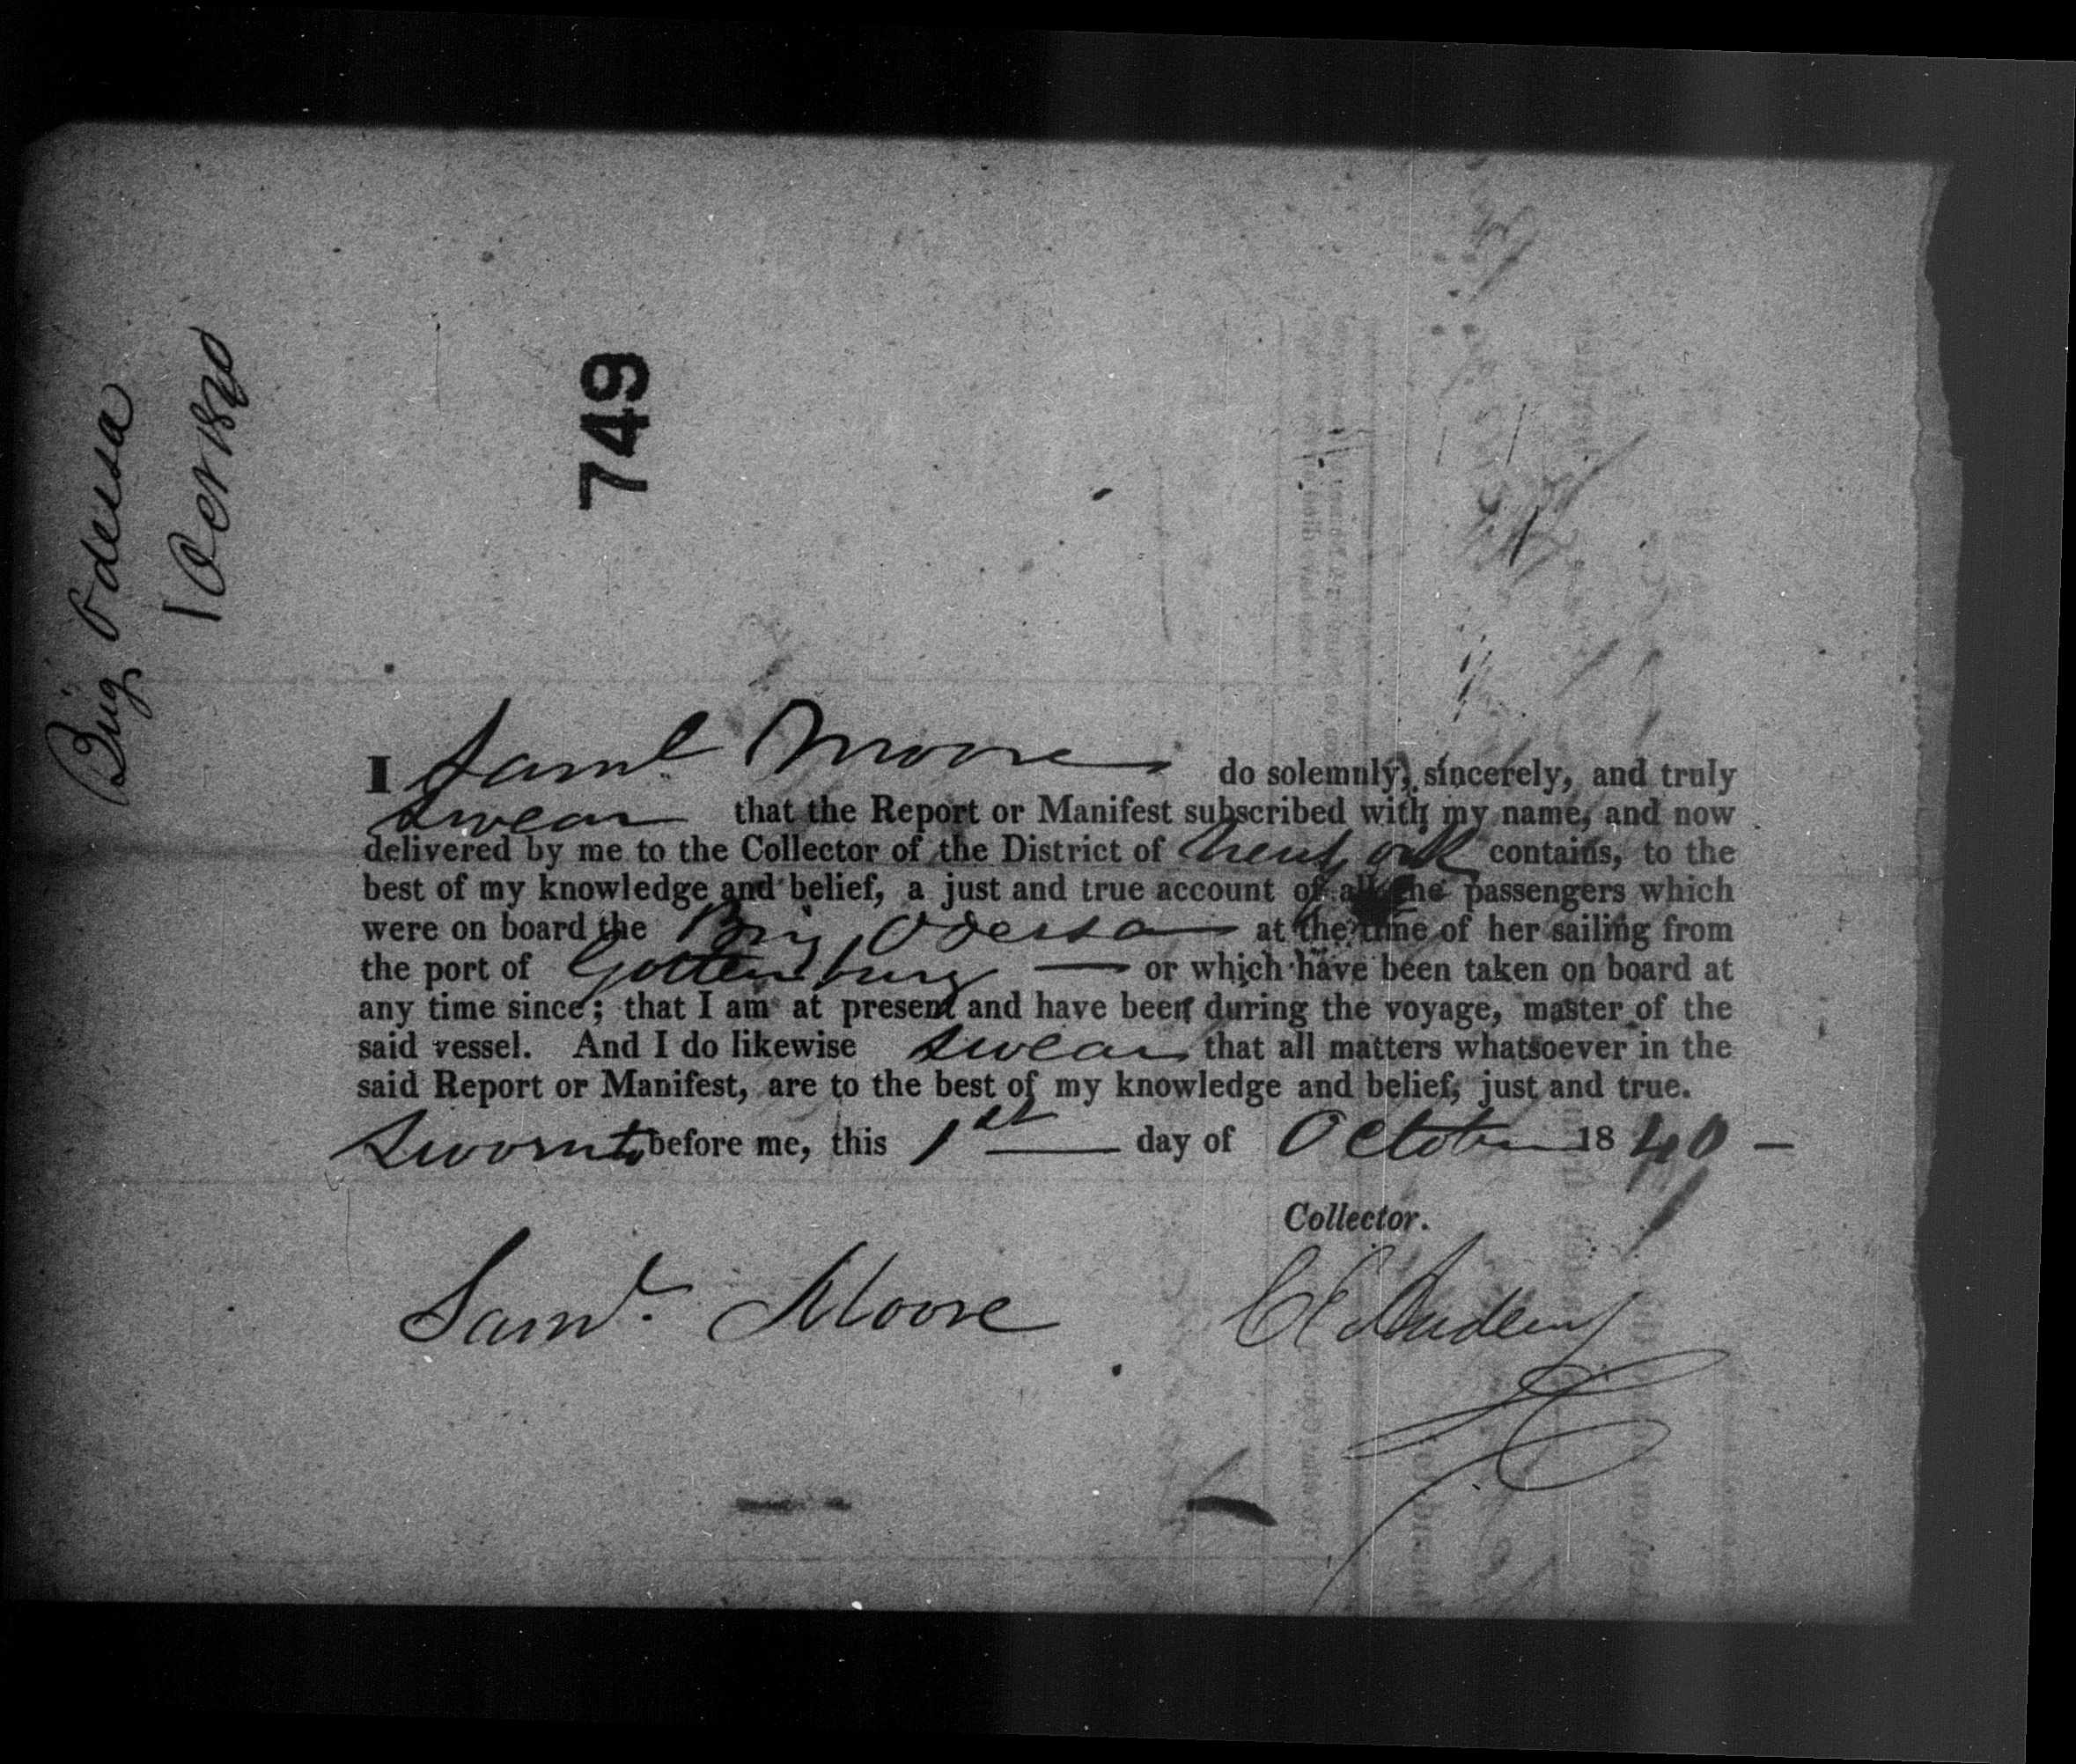 Brig Odessa
1 Oct 1840
749
I Saml Moore do solemnly, sincerely, and truly
swear that the Report or Manifest subscribed with my name, and now
delivered by me to the Collector of the District of New York contains, to the
best of my knowledge and belief, a just and true account of all the passengers which
were on board the Brig Odessa at the time of her sailing from
the port of Gottenburg — or which have been taken on board at
any time since; that I am at present and have been during the voyage, master of the
said vessel. And I do likewise swear that all matters whatsoever in the
said Report or Manifest, are to the best of my knowledge and belief, just and true.
Sworn to before me, this 1st day of October 1840 —
Collector.
Saml. Moore